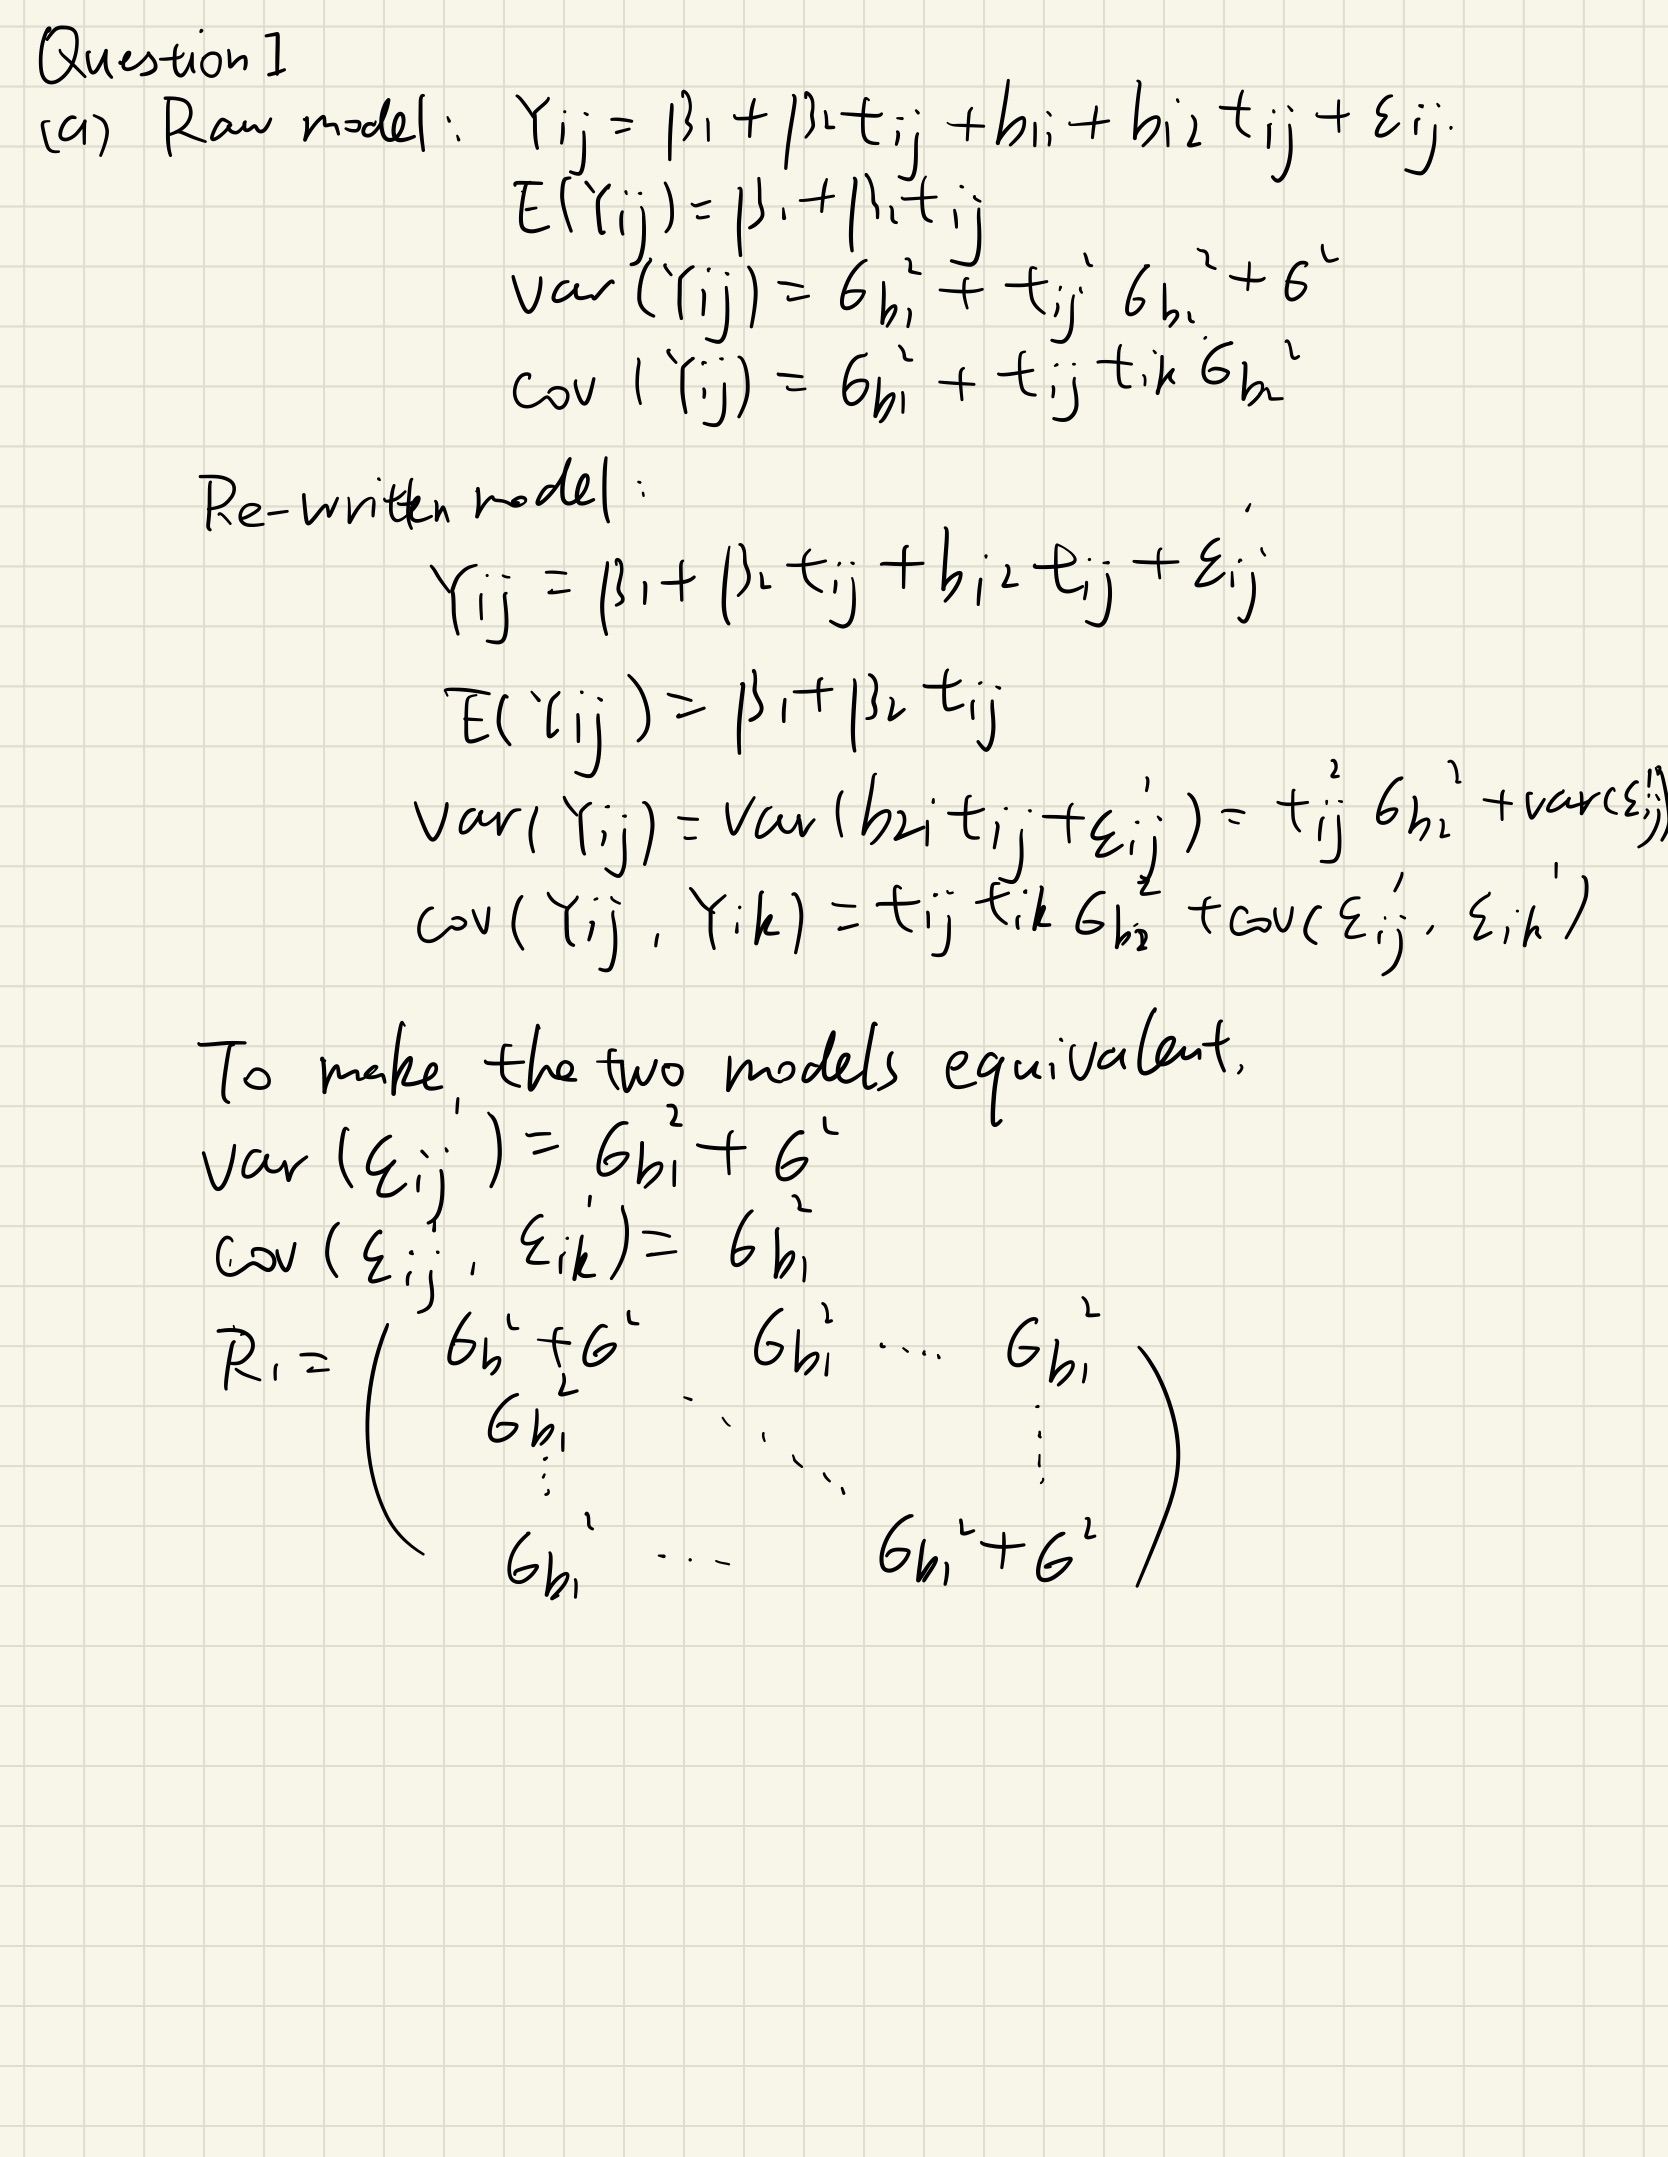 Question 1
(a) Raw model: Yij = β1 + β2 tij + b1i + bi2 tij + εij.
E(Yij) = β1 + β2 tij
var(Yij) = σb1² + tij² σb2² + σ²
cov(Yij) = σb1² + tij tik σb2²
Re-written model:
Yij = β1 + β2 tij + bi2 tij + εij'
E(Yij) = β1 + β2 tij
var(Yij) = var(b2i tij + εij') = tij² σb2² + var(εij')
cov(Yij, Yik) = tij tik σb2² + cov(εij', εik')
To make the two models equivalent,
var(εij') = σb1² + σ²
cov(εij', εik') = σb1²
R1 = ( σb² + σ² σb1² .... σb1²
σb1²
σb1² ... σb1² + σ² )